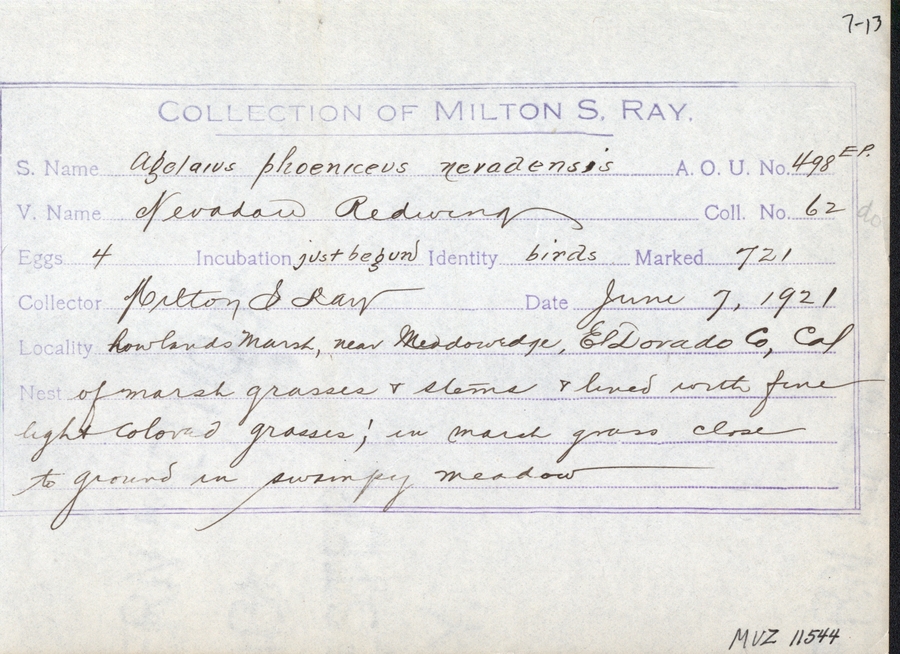 7-13
COLLECTION OF MILTON S. RAY.
S. Name Agelaius phoeniceus nevadensis A. O. U. No. 498 EP.
V. Name Nevadan Redwing Coll. No. 62
do
Eggs 4 Incubation just begun Identity birds Marked 721
Collector Milton S Ray Date June 7, 1921
Locality Rowlands Marsh, near Meadowedge, El Dorado Co, Cal
Nest of marsh grasses & stems & lined with fine
light colored grasses; in marsh grass close
to ground in swampy meadow
MVZ 11544